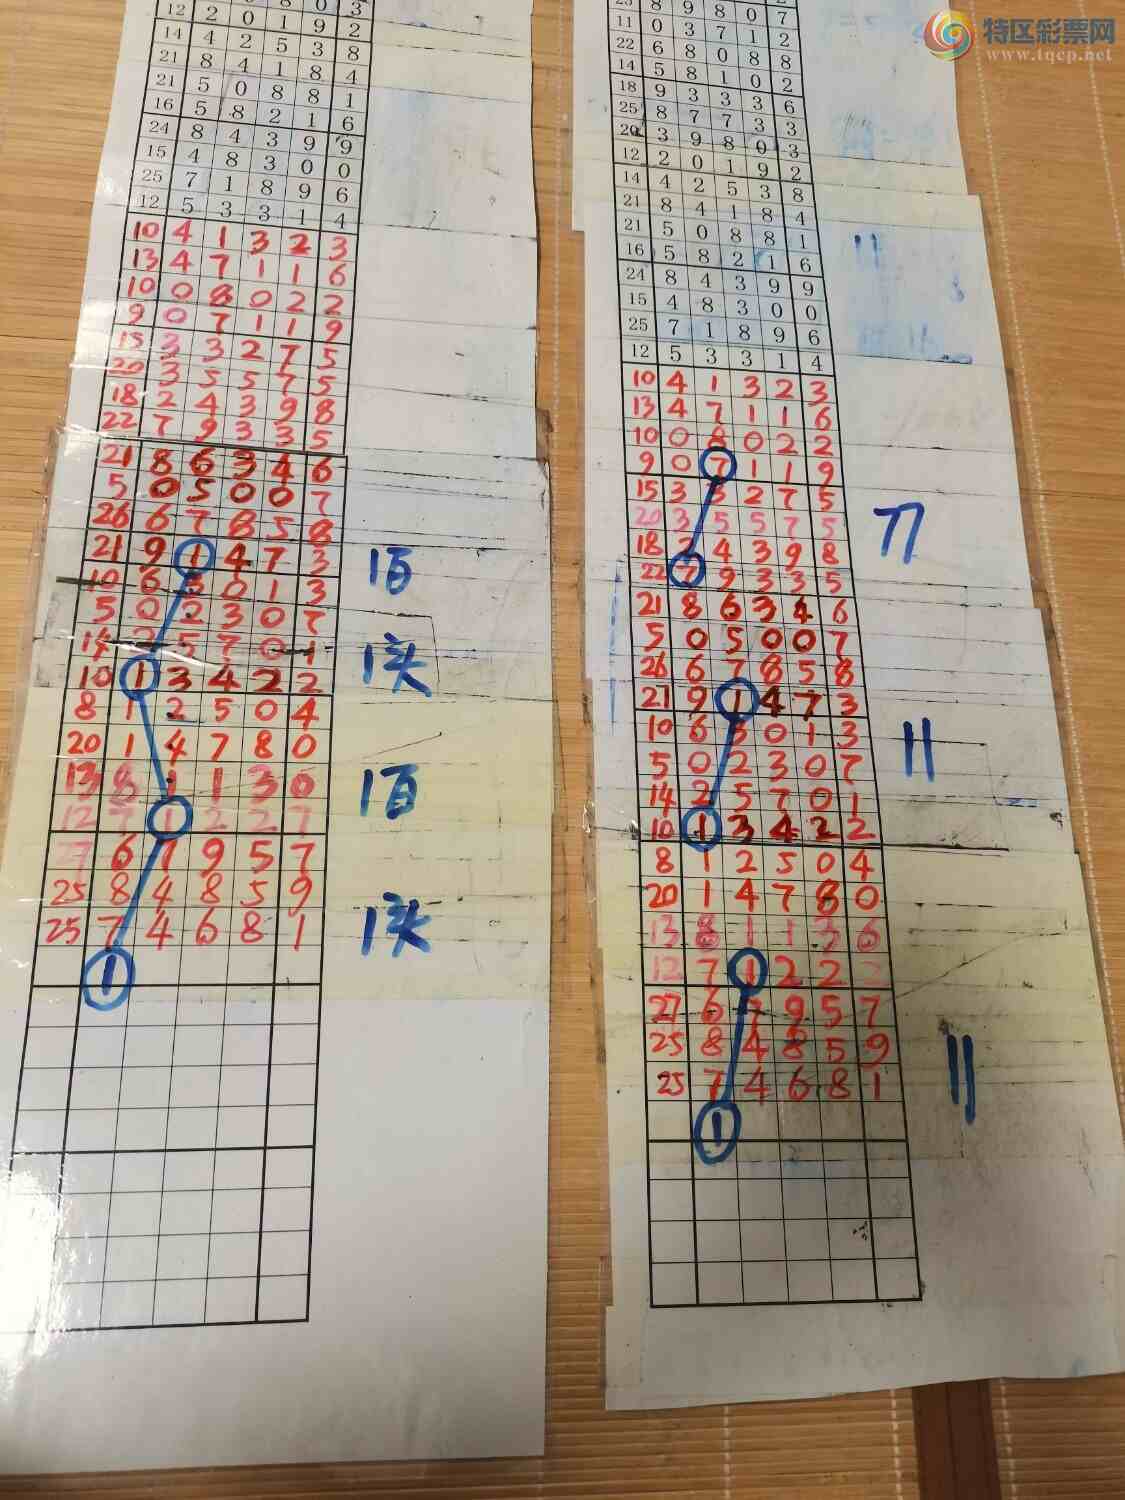 特区彩票网
www.tqcp.net
12 2 0 1 9 2
14 4 2 5 3 8
21 8 4 1 8 4
21 5 0 8 8 1
16 5 8 2 1 6
24 8 4 3 9 9
15 4 8 3 0 0
25 7 1 8 9 6
12 5 3 3 1 4
10 4 1 3 2 3
13 4 7 1 1 6
10 0 8 0 2 2
9 0 7 1 1 9
15 3 3 2 7 5
20 3 5 5 7 5
18 2 4 3 9 8
22 7 9 3 3 5
21 8 6 3 4 6
5 0 5 0 0 7
26 6 7 8 5 8
21 9 1 4 7 3
1百
10 6 3 0 1 3
5 0 2 3 0 7
14 2 5 7 0 1
10 1 3 4 2 2
1头
8 1 2 5 0 4
20 1 4 7 8 0
13 8 1 1 3 0
1百
12 7 1 2 2 7
27 6 7 9 5 7
25 8 4 8 5 9
25 7 4 6 8 1
1头
1
8 9 8 0 7
11 0 3 7 1 2
22 6 8 0 8 8
14 5 8 1 0 2
18 9 3 3 3 6
25 8 7 7 3 3
20 3 9 8 0 3
12 2 0 1 9 2
14 4 2 5 3 8
21 8 4 1 8 4
21 5 0 8 8 1
16 5 8 2 1 6
24 8 4 3 9 9
15 4 8 3 0 0
25 7 1 8 9 6
12 5 3 3 1 4
10 4 1 3 2 3
13 4 7 1 1 6
10 0 8 0 2 2
9 0 7 1 1 9
15 3 3 2 7 5
20 3 5 5 7 5
77
18 2 4 3 9 8
22 7 9 3 3 5
21 8 6 3 4 6
5 0 5 0 0 7
26 6 7 8 5 8
21 9 1 4 7 3
10 6 3 0 1 3
11
5 0 2 3 0 7
14 2 5 7 0 1
10 1 3 4 2 2
8 1 2 5 0 4
20 1 4 7 8 0
13 8 1 1 3 6
12 7 1 2 2 2
27 6 7 9 5 7
25 8 4 8 5 9
25 7 4 6 8 1
11
1